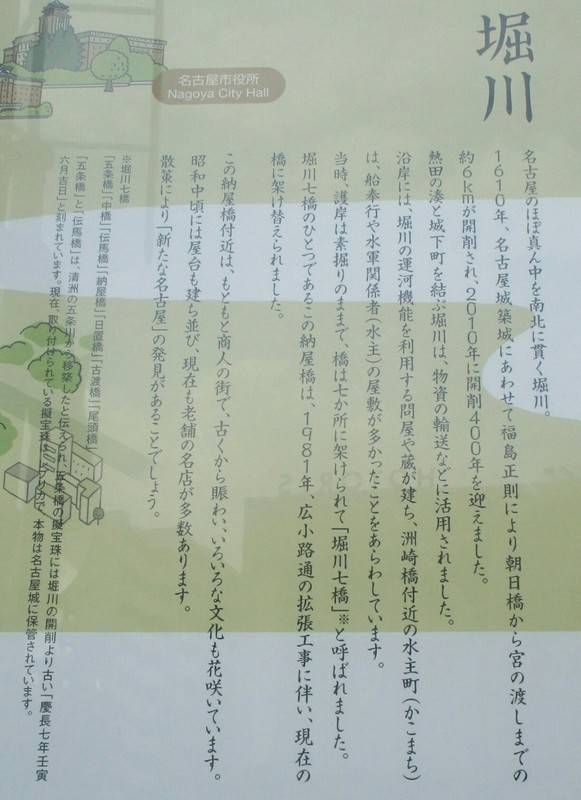 堀川
名古屋のほぼ真ん中を南北に貫く堀川。
1610年、名古屋城築城にあわせて福島正則により朝日橋から宮の渡しまでの
約6kmが開削され、2010年に開削400年を迎えました。
熱田の湊と城下町を結ぶ堀川は、物資の輸送などに活用されました。
沿岸には、堀川の運河機能を利用する問屋や蔵が建ち、洲崎橋付近の水主町(かこまち)
は、船奉行や水軍関係者(水主)の屋敷が多かったことをあらわしています。
当時、護岸は素掘りのままで、橋は七か所に架けられて「堀川七橋」※と呼ばれました。
堀川七橋のひとつであるこの納屋橋は、1981年、広小路通の拡張工事に伴い、現在の
橋に架け替えられました。
この納屋橋付近は、もともと商人の街で、古くから賑わい、いろいろな文化も花咲いています。
昭和中頃には屋台も建ち並び、現在も老舗の名店が多数あります。
散策により「新たな名古屋」の発見があることでしょう。
※堀川七橋
「五条橋」「中橋」「伝馬橋」「納屋橋」「日置橋」「古渡橋」「尾頭橋」
「五条橋」と「伝馬橋」は、清洲の五条川から移築したと伝えられ、五条橋の擬宝珠には堀川の開削より古い「慶長七年壬寅
六月吉日」と刻まれています。現在、取り付けられている擬宝珠はレプリカで、本物は名古屋城に保管されています。
名古屋市役所
Nagoya City Hall